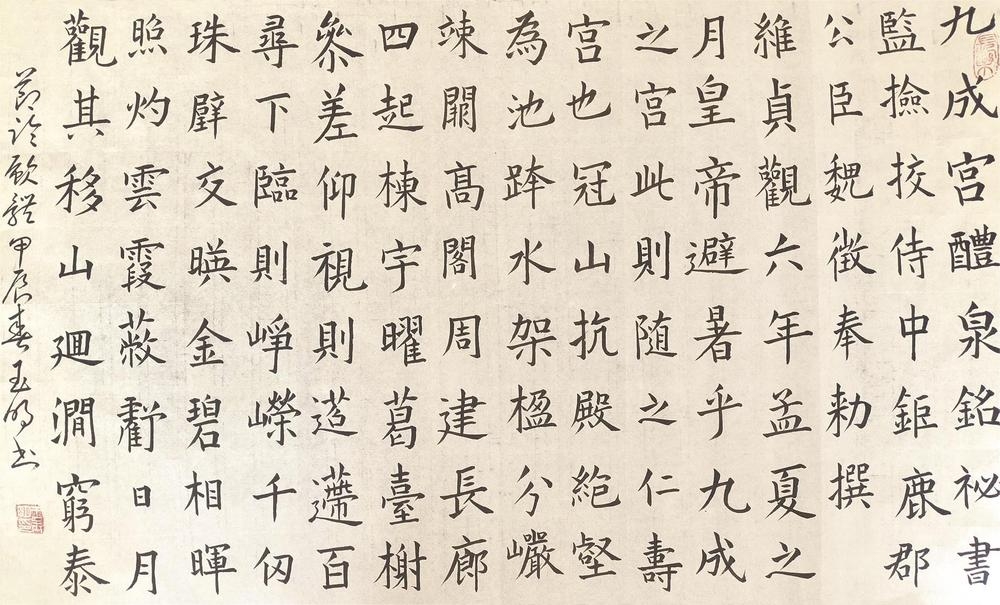 九成宮醴泉銘祕書
監撿挍侍中鉅鹿郡
公臣魏徵奉勑撰
維貞觀六年孟夏之
月皇帝避暑乎九成
之宮此則随之仁壽
宮也冠山抗殿絕壑
為池跨水架楹分巖
竦闕高閣周建長廊
四起棟宇曜葛臺榭
參差仰視則迢遰百
尋下臨則崢嶸千仞
珠璧交暎金碧相暉
照灼雲霞蔽虧日月
觀其移山迴澗窮泰
節臨歐體甲辰春玉明書